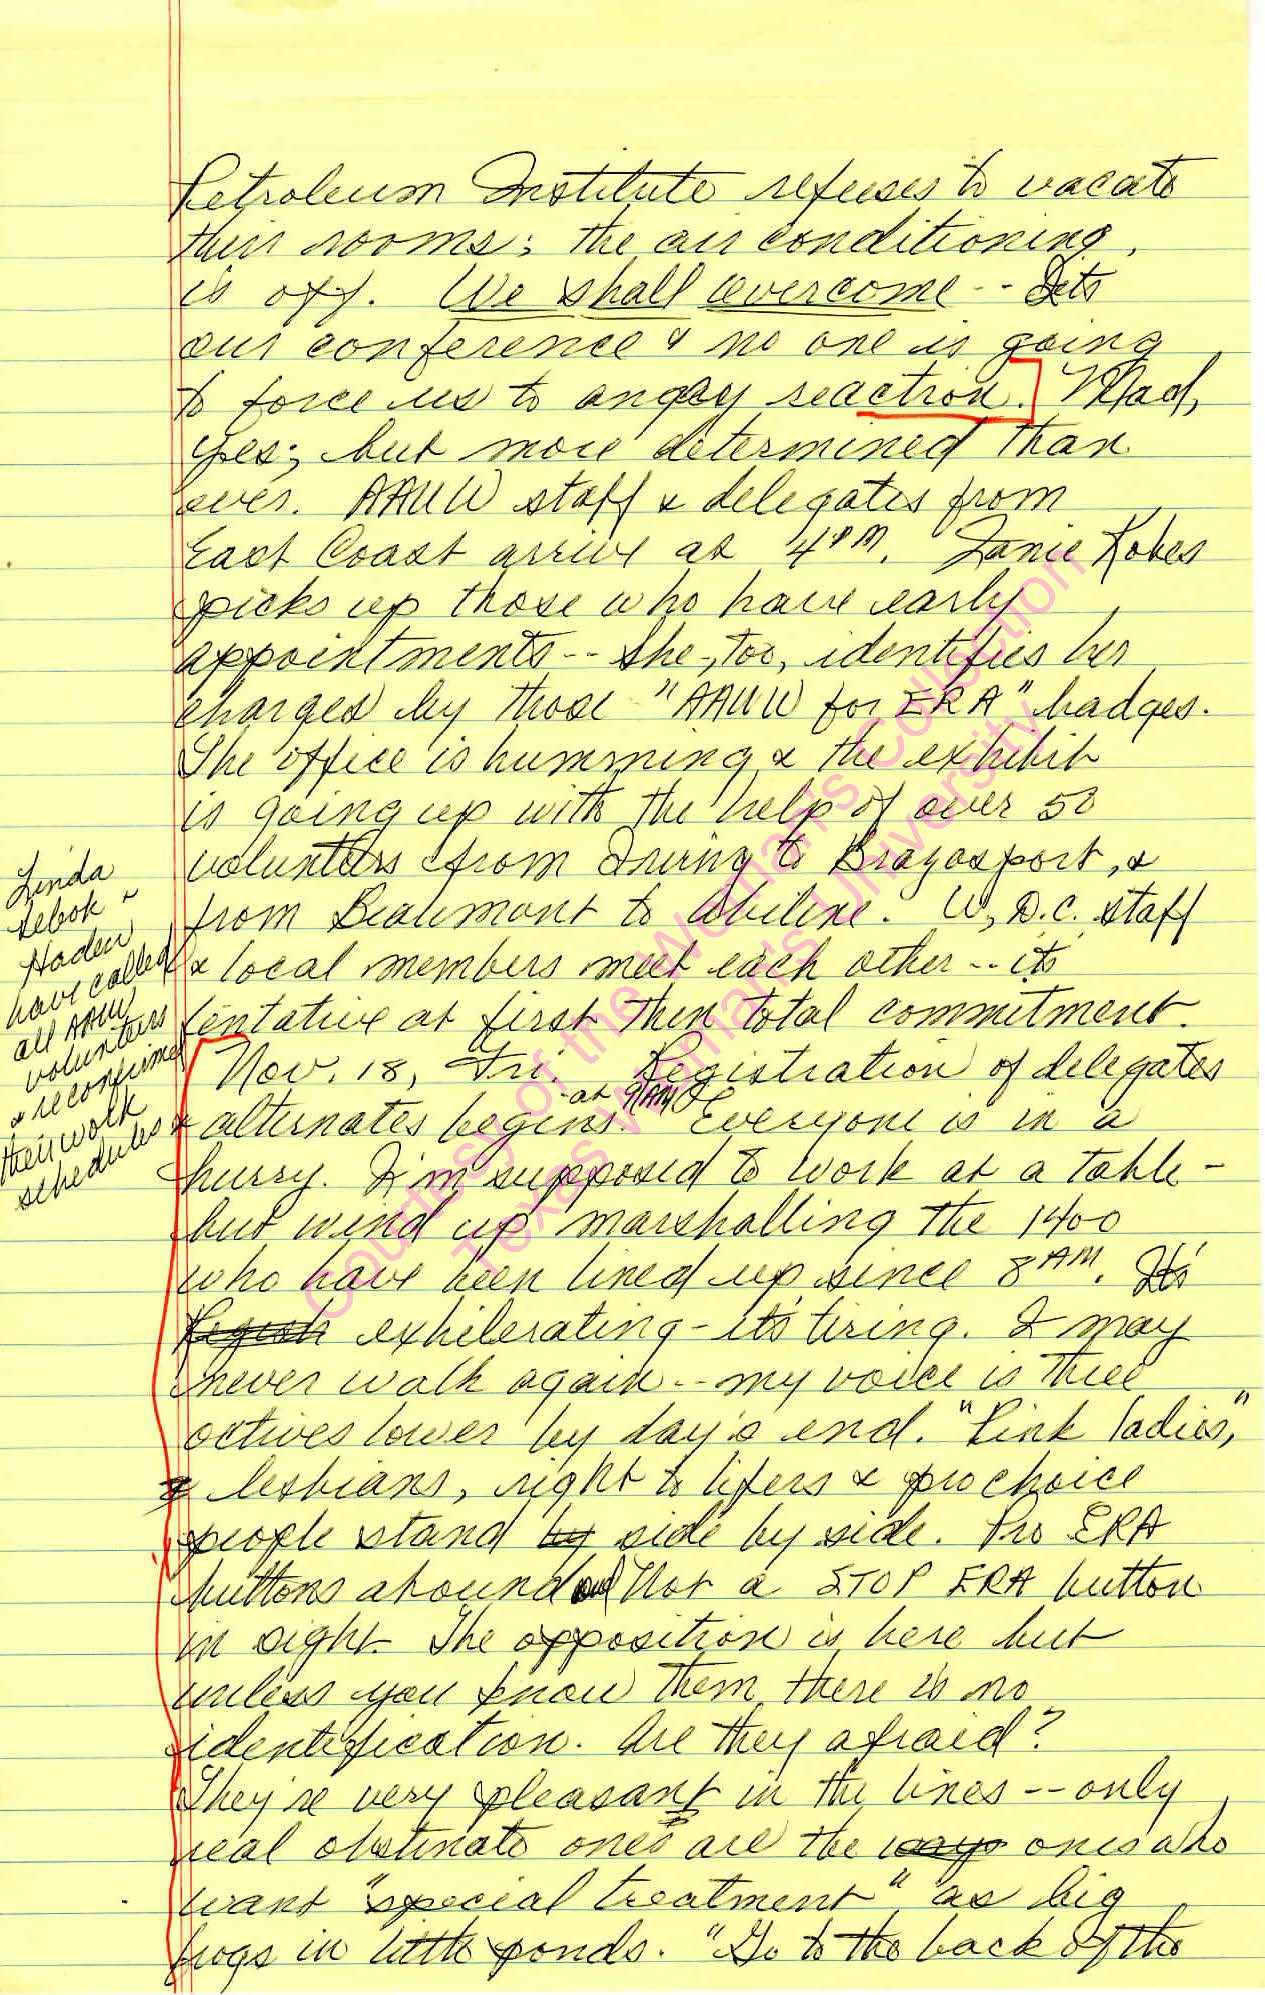 Petroleum Institute refuses to vacate
their rooms; the air conditioning
is off. We shall overcome -- Its
our conference & no one is going
to force us to angry reaction. Mad,
yes; but more determined than
ever. AAUW staff & delegates from
East Coast arrive at 4 PM. Janie Kobes
picks up those who have early
appointments -- she, too, identifies her
charges by those "AAUW for ERA" badges.
The office is humming & the exhibit
is going up with the help of over 50
volunteers from Irving to Brazosport, &
from Beaumont to Abilene. W, D.C. staff
& local members meet each other -- its
tentative at first then total commitment.
Linda
Rebok
Haden
have called
all AAUW
volunteers
& reconfirmed
their work
schedules
Nov. 18, Fri. Registration of delegates
& alternates begins at 9 AM. Everyone is in a
hurry. I'm supposed to work at a table -
but wind up marshalling the 1400
who have been lined up since 8 AM. It's
exhilerating - its tiring. I may
never walk again -- my voice is three
octives lower by day's end. "Pink ladies,"
lesbians, right to lifers & pro choice
people stand by side by side. Pro ERA
buttons abound Not a STOP ERA button
in sight. The opposition is here but
unless you know them there is no
identification. Are they afraid?
They're very pleasant in the lines -- only
real obstinate ones are the ways ones who
want "special treatment" as big
frogs in little ponds. "Go to the back of the
Courtesy of the Woman's Collection
Texas Woman's University